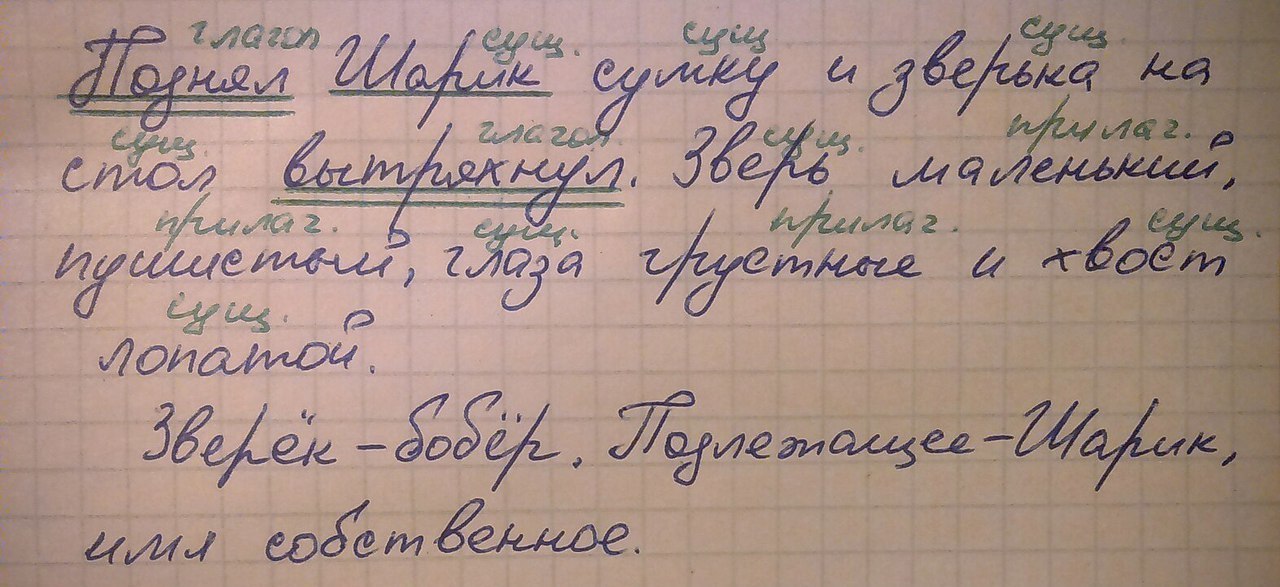 глагол сущ. сущ сущ.
Поднял Шарик сумку и зверька на
сущ. глагол. сущ. прилаг.
стол вытряхнул. Зверь маленький,
прилаг. сущ. прилаг. сущ.
пушистый, глаза грустные и хвост
сущ.
лопатой.
Зверёк - бобёр. Подлежащее - Шарик,
имя собственное.